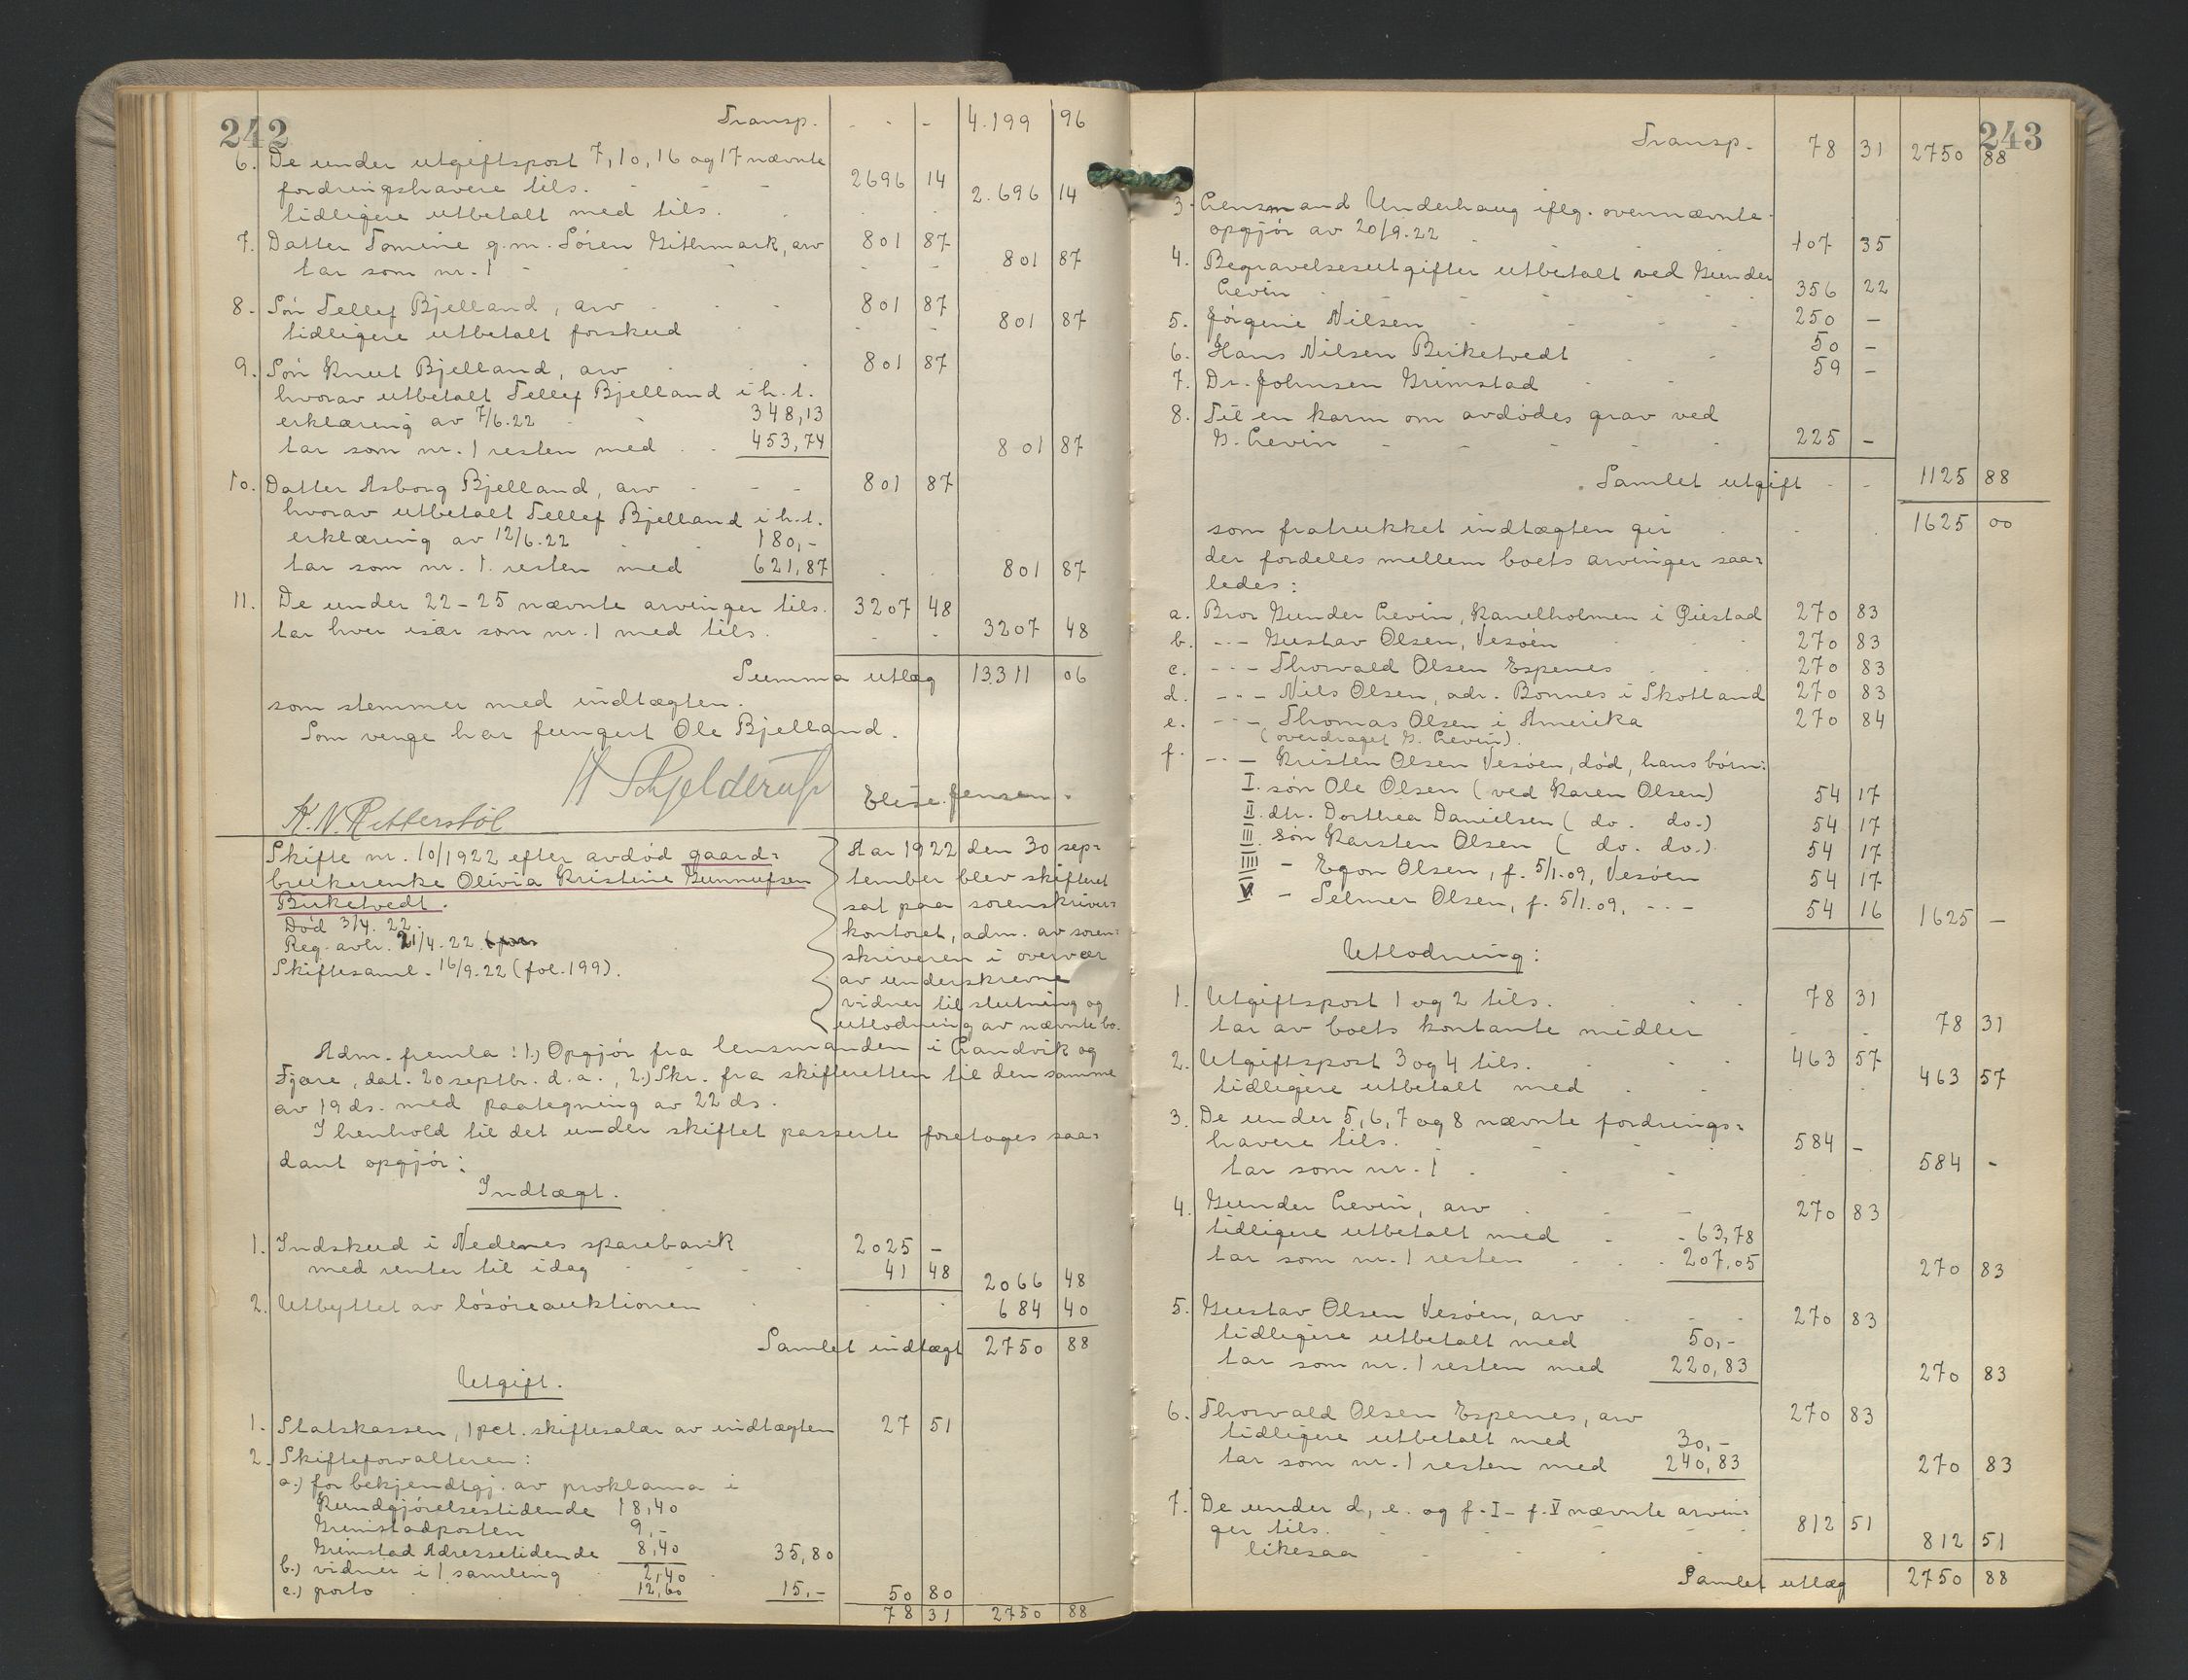 242
Transp. - - - 4.199 96
6. De under utgiftspost 7, 10, 16 og 17 nævnte
fordringshavere tils. - - - 2696 14
tidligere utbetalt med tils. 2.696 14
7. Datter Tomine g.m. Sören Githmark, arv 801 87
tar som nr. 1 - - - 801 87
8. Sön Tellef Bjelland, arv 801 87
tidligere utbetalt forskud 801 87
9. Sön Knut Bjelland, arv 801 87
hvorav utbetalt Tellef Bjelland i h.t.
erklæring av 7/6.22 348,13
tar som nr. 1 resten med 453,74 801 87
10. Datter Asborg Bjelland, arv - - - 801 87
hvorav utbetalt Tellef Bjelland i h.t.
erklæring av 12/6.22 180,-
tar som nr. 1. resten med 621,87 801 87
11. De under 22-25 nævnte arvinger tils. 3207 48
tar hver især som nr. 1 med tils. 3207 48
Summa utlæg 13311 06
som stemmer med indtægten.
Som verge har fungert Ole Bjelland.
H Schjelderup
Elise Jensen.
K. N. Rettersböl
Skifte nr. 10/1922 efter avdöd gaard-
brukerenke Olivia Kristine Gunnufsen
Birketvedt.
Död 3/4. 22.
Reg. avh. 21/4.22
Skiftesaml. 16/9.22 (fol. 199).
Aar 1922 den 30 sep-
tember blev skifteret
sat paa sorenskriver-
kontoret, adm. av soren-
skriveren i overvær
av underskrevne
vidner til slutning og
utlodning av nævnte bo.
Adm. fremla: 1.) Opgjör fra lensmanden i Landvik og
Fjære, dat. 20 septbr. d.a., 2.) Skr. fra skifteretten til den samme
av 19 ds. med paategning av 22 ds.
I henhold til det under skiftet passerte foretoges saa-
dant opgjör:
Indtægt.
1. Indskud i Nedenes sparebank 2025 -
med renter til idag - - - 41 48 2066 48
2. Utbyttet av lösöreauktionen 684 40
Samlet indtægt 2750 88
Utgift.
1. Statskassen, 1 pct. skiftesalær av indtægten 27 51
2. Skifteforvalteren:
a.) for bekjendtgj. av proklama i
Kundgjörelsestidende 18,40
Grimstadposten 9,-
Grimstad Adressetidende 8,40 35,80
b.) vidner i 1 samling 2,40
c.) porto 12,60 15,- 50 80
78 31 2750 88
243
Transp. 78 31 2750 88
3. Lensmand Underhaug iflg. ovennævnte
opgjör av 20/9.22 107 35
4. Begravelsesutgifter utbetalt ved Gunder
Levin 356 22
5. Jörgine Nilsen 250 -
6. Hans Nilsen Birketvedt 50 -
7. Dr. Johnsen Grimstad 59 -
8. Til en karm om avdödes grav ved
G. Levin 225 -
Samlet utgift - - 1125 88
som fratrukket indtægten gir 1625 00
der fordeles mellem boets arvinger saa-
ledes:
a. Bror Gunder Levin, Kanelholmen i Öiestad 270 83
b. - - - Gustav Olsen, Vesöen 270 83
c. - - - Thorvald Olsen Espenes 270 83
d. - - - Nils Olsen, adr. Bonnes i Skotland 270 83
e. - - - Thomas Olsen i Amerika 270 84
(overdraget G. Levin).
f. - - - Kristen Olsen Vesöen, död, hans börn:
I. sön Ole Olsen (ved Karen Olsen) 54 17
II. dtr. Dorthea Danielsen ( do. do.) 54 17
III. sön Karsten Olsen ( do. do.) 54 17
IIII - Egon Olsen, f. 5/1.09, Vesöen 54 17
V. - Selmer Olsen, f. 5/1.09, - - - 54 16 1625 -
Utlodning:
1. Utgiftspost 1 og 2 tils. 78 31
tar av boets kontante midler 78 31
2. Utgiftspost 3 og 4 tils. 463 57
tidligere utbetalt med 463 57
3. De under 5, 6, 7 og 8 nævnte fordrings-
havere tils. 584 -
tar som nr. 1 584 -
4. Gunder Levin, arv 270 83
tidligere utbetalt med - 63,78
tar som nr. 1 resten 207,05 270 83
5. Gustav Olsen Vesöen, arv 270 83
tidligere utbetalt med 50,-
tar som nr. 1 resten med 220,83 270 83
6. Thorvald Olsen Espenes, arv 270 83
tidligere utbetalt med 30,-
tar som nr. 1 resten med 240,83 270 83
7. De under d, e. og f. I - f. V nævnte arvin-
ger tils. 812 51
likesaa 812 51
Samlet utlæg 2750 88